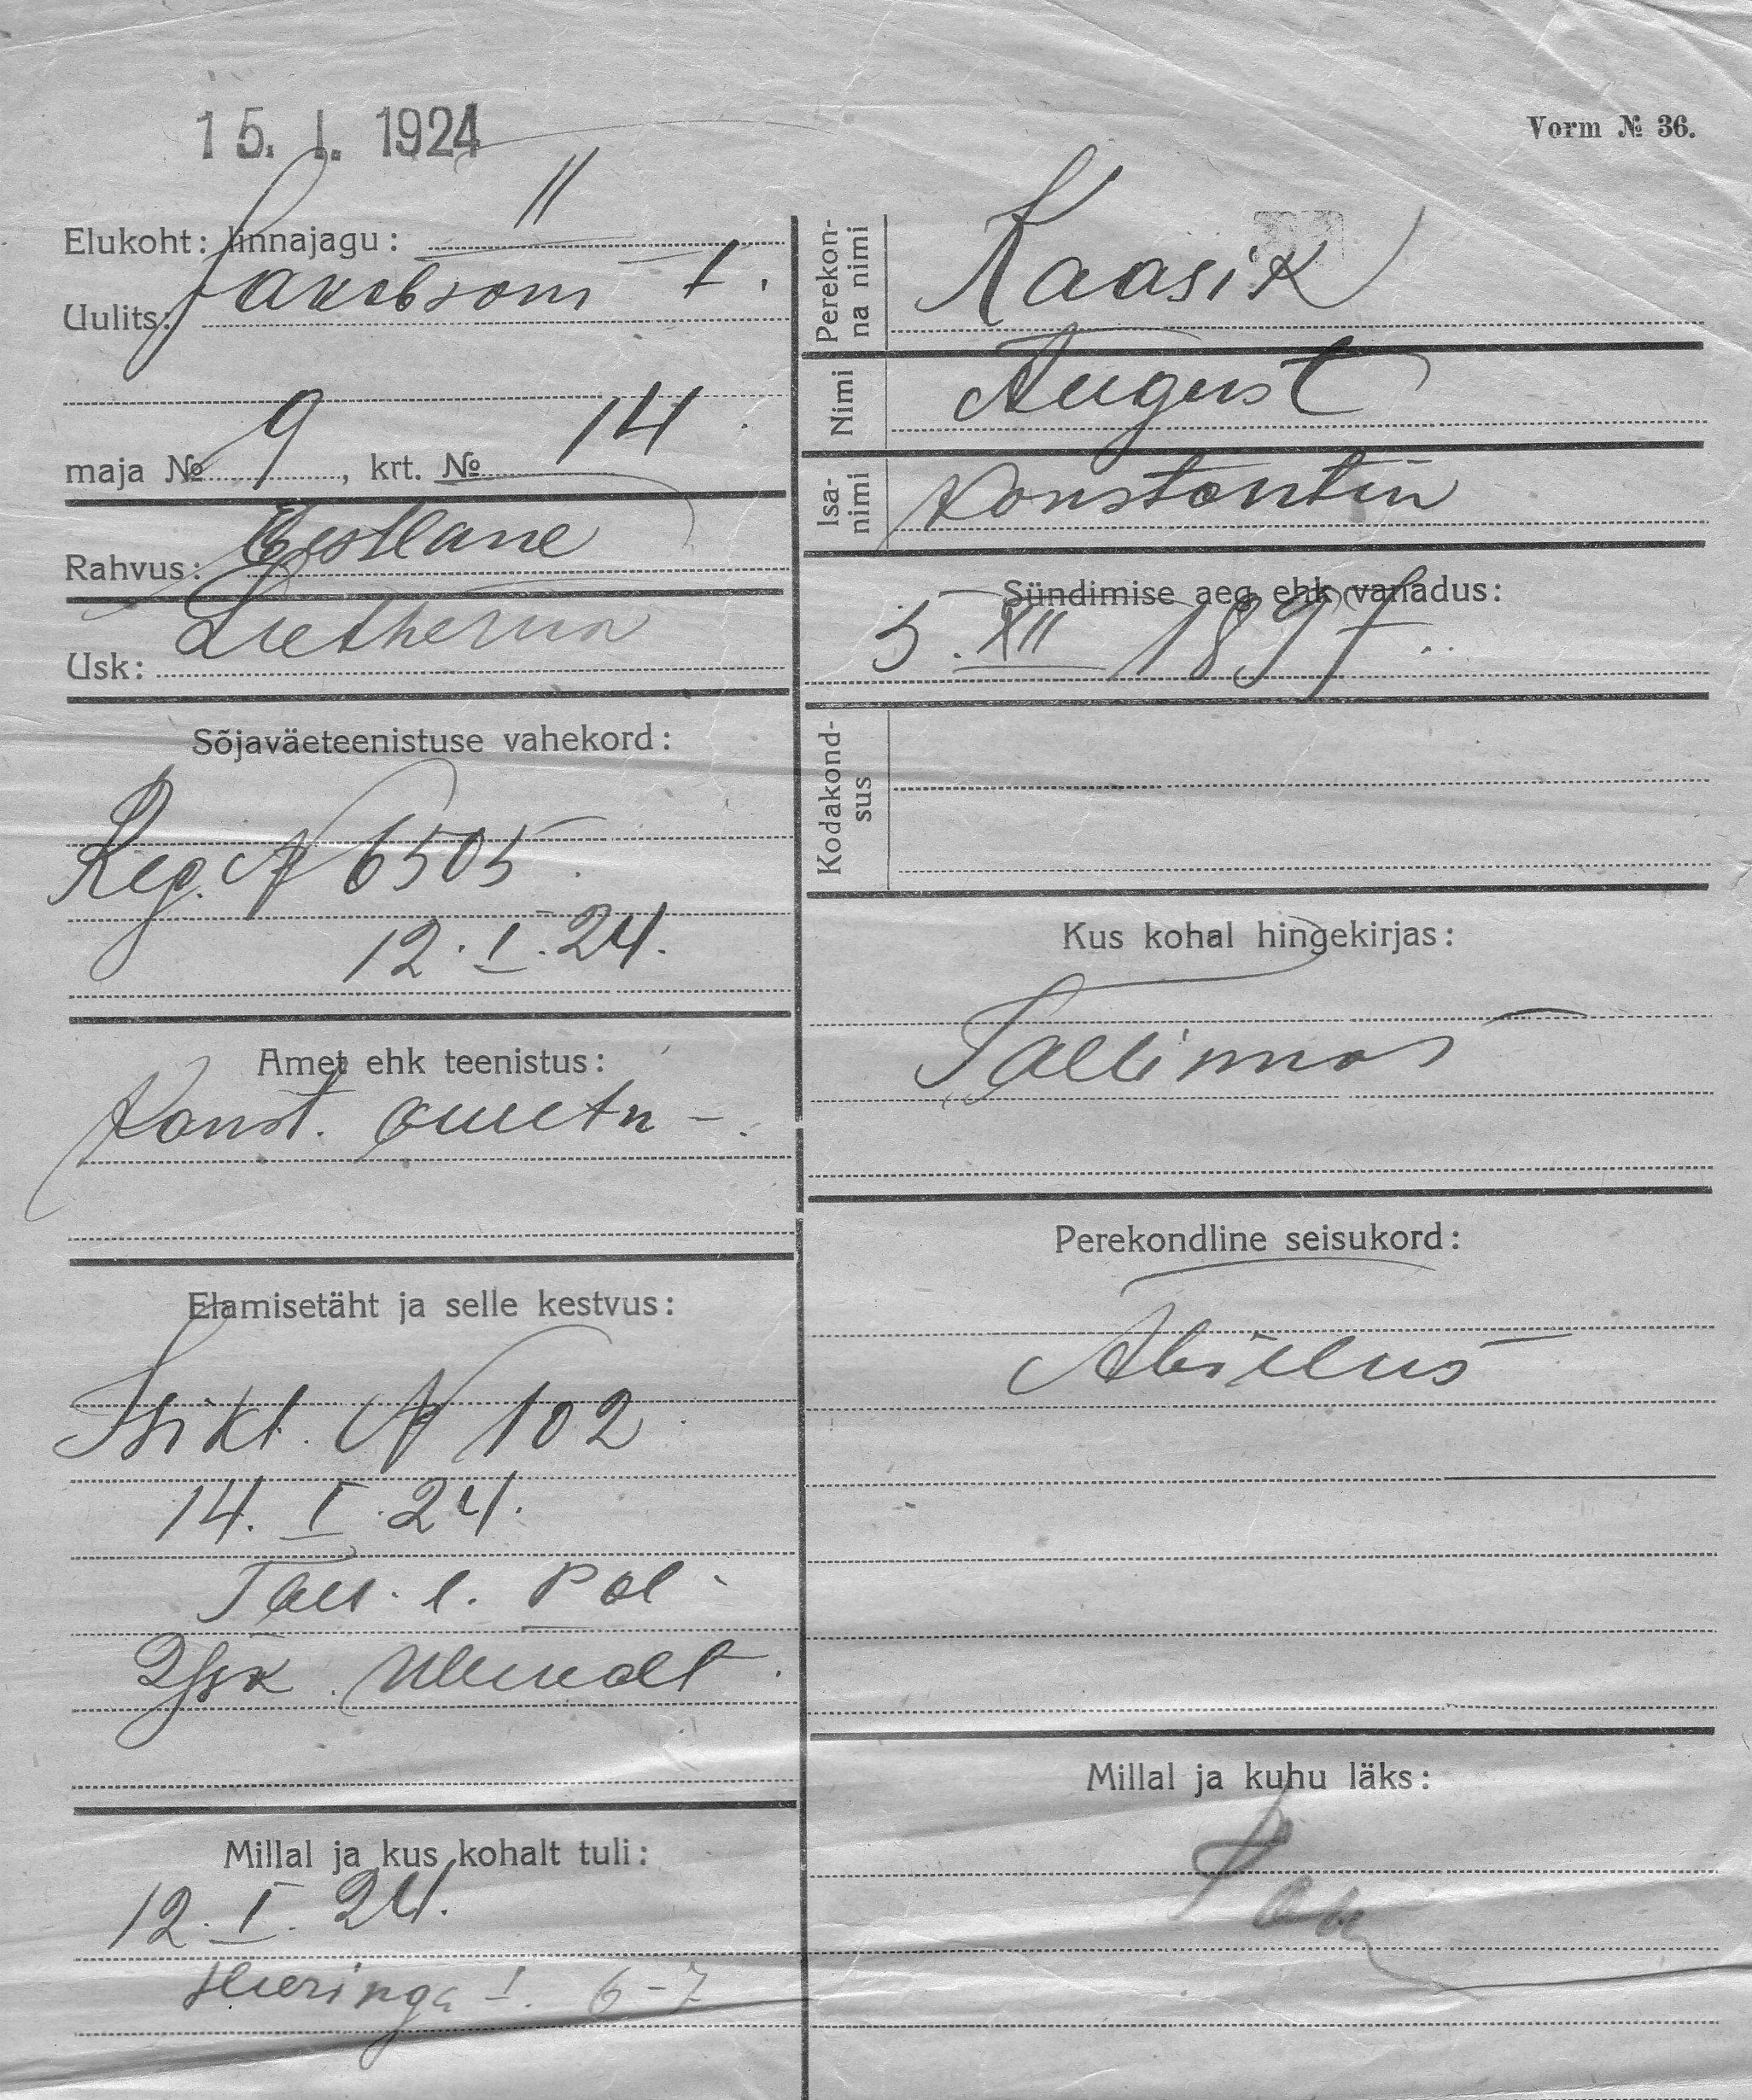 15. I. 1924
Vorm № 36.
Elukoht: linnajagu: II
Uulits: Jakobsoni t.
maja № 9, krt. № 14.
Rahvus: Eestlane
Usk: Lutheruse
Sõjaväeteenistuse vahekord:
Reg. N 6505.
12. I. 24.
Amet ehk teenistus:
Konst. ametn -.
Elamisetäht ja selle kestvus:
Isikt. N 102.
14. I. 24.
Tall. l. Pol.
Jsk.
Millal ja kus kohalt tuli:
12. I. 24.
Heeringa I. 6-7
Perekon-
na nimi Kaasik
Nimi August
Isa-
nimi Konstantin
Sündimise aeg ehk vanadus:
5. XII 1897.
Kodakond-
sus
Kus kohal hingekirjas:
Tallinnas
Perekondline seisukord:
Abielus
Millal ja kuhu läks: